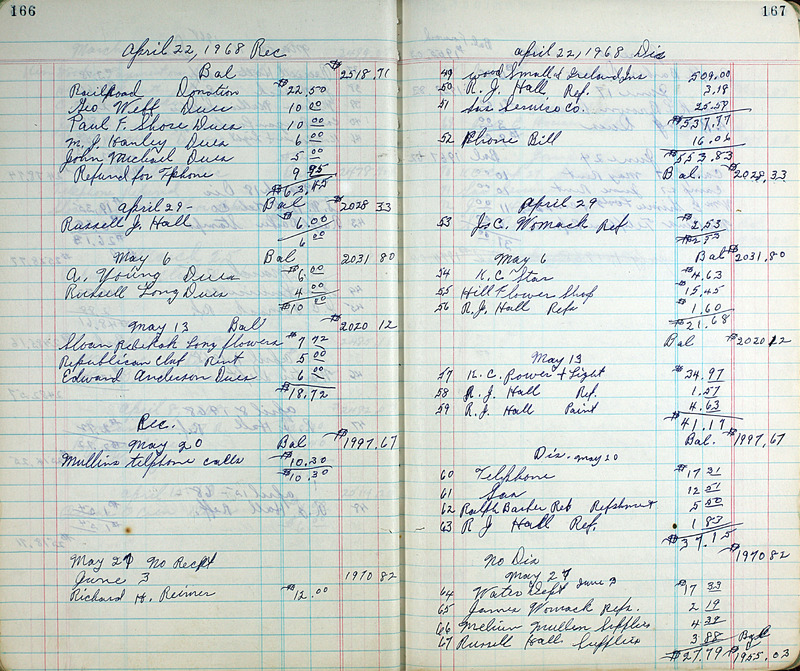 166
April 22, 1968 Rec
Bal $2518.71
Railroad Donation $22.50
Geo Webb Dues 10 00
Paul F. Shore Dues 10 00
M. J. Hanley Dues 6 00
John Michael Dues 5 00
Refund for Tphone 9 95
$63.45
April 29 - Bal $2028 33
Russell J. Hall $6.00
6 00
May 6 Bal 2031 80
A. Young Dues $6 00
Russell Long Dues 4 00
$10 00
May 13 Bal $2020 12
Sloan Rebekah Long flowers $7 72
Republican Club Rent 5 00
Edward Anderson Dues 6 00
$18.72
Rec.
May 20 Bal $1997.67
Mullins telphone calls $10.30
$10.30
May 27 No Recpt
June 3 1970 82
Richard H. Reimer $12.00
167
April 22, 1968 Dis
49 Wood Small & Ireland Ins 509.00
50 R. J. Hall, Ref. 3.19
51 Gas Service Co. 25.58
$537.77
52 Phone Bill 16.06
$553.83
Bal. $2028.33
April 29
53 J.C. Womack Ref $2.53
$2.53
May 6 Bal $2031.80
54 K.C. Star $4.63
55 Hill Flower Shop 15.45
56 R.J. Hall Refs $1.60
$21.68
Bal $2020 12
May 13
57 K.C. Power & Light $34.97
58 R. J. Hall Ref. 1.57
59 R. J. Hall Paint 4.63
$41.17
Bal. $1997.67
Dis. May 20
60 Telphone $17 31
61 Gas 12 51
62 Ralph Barber Reb Refshment 5 50
63 R J Hall Ref. 1 83
$37.15
$1970 82
No Dis
May 27
June 3
64 Water Dept $17 33
65 James Womack Refs. 2 19
66 Melvin Mullin Supplies 4 39
67 Russell Hall Supplies 3 88 Bal
$27.79 $1955.03